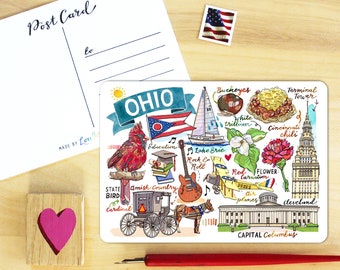 Post Card
to
MADE BY
OHIO
Buckeyes
Terminal
Tower
White
trillium
Cincinnati
chili
Education
Lake Erie
Rock &
Roll
Red
Carnation
FLOWER
STATE
BIRD
Cardinal
Amish Country
Airplanes
Cleveland
CAPITAL Columbus